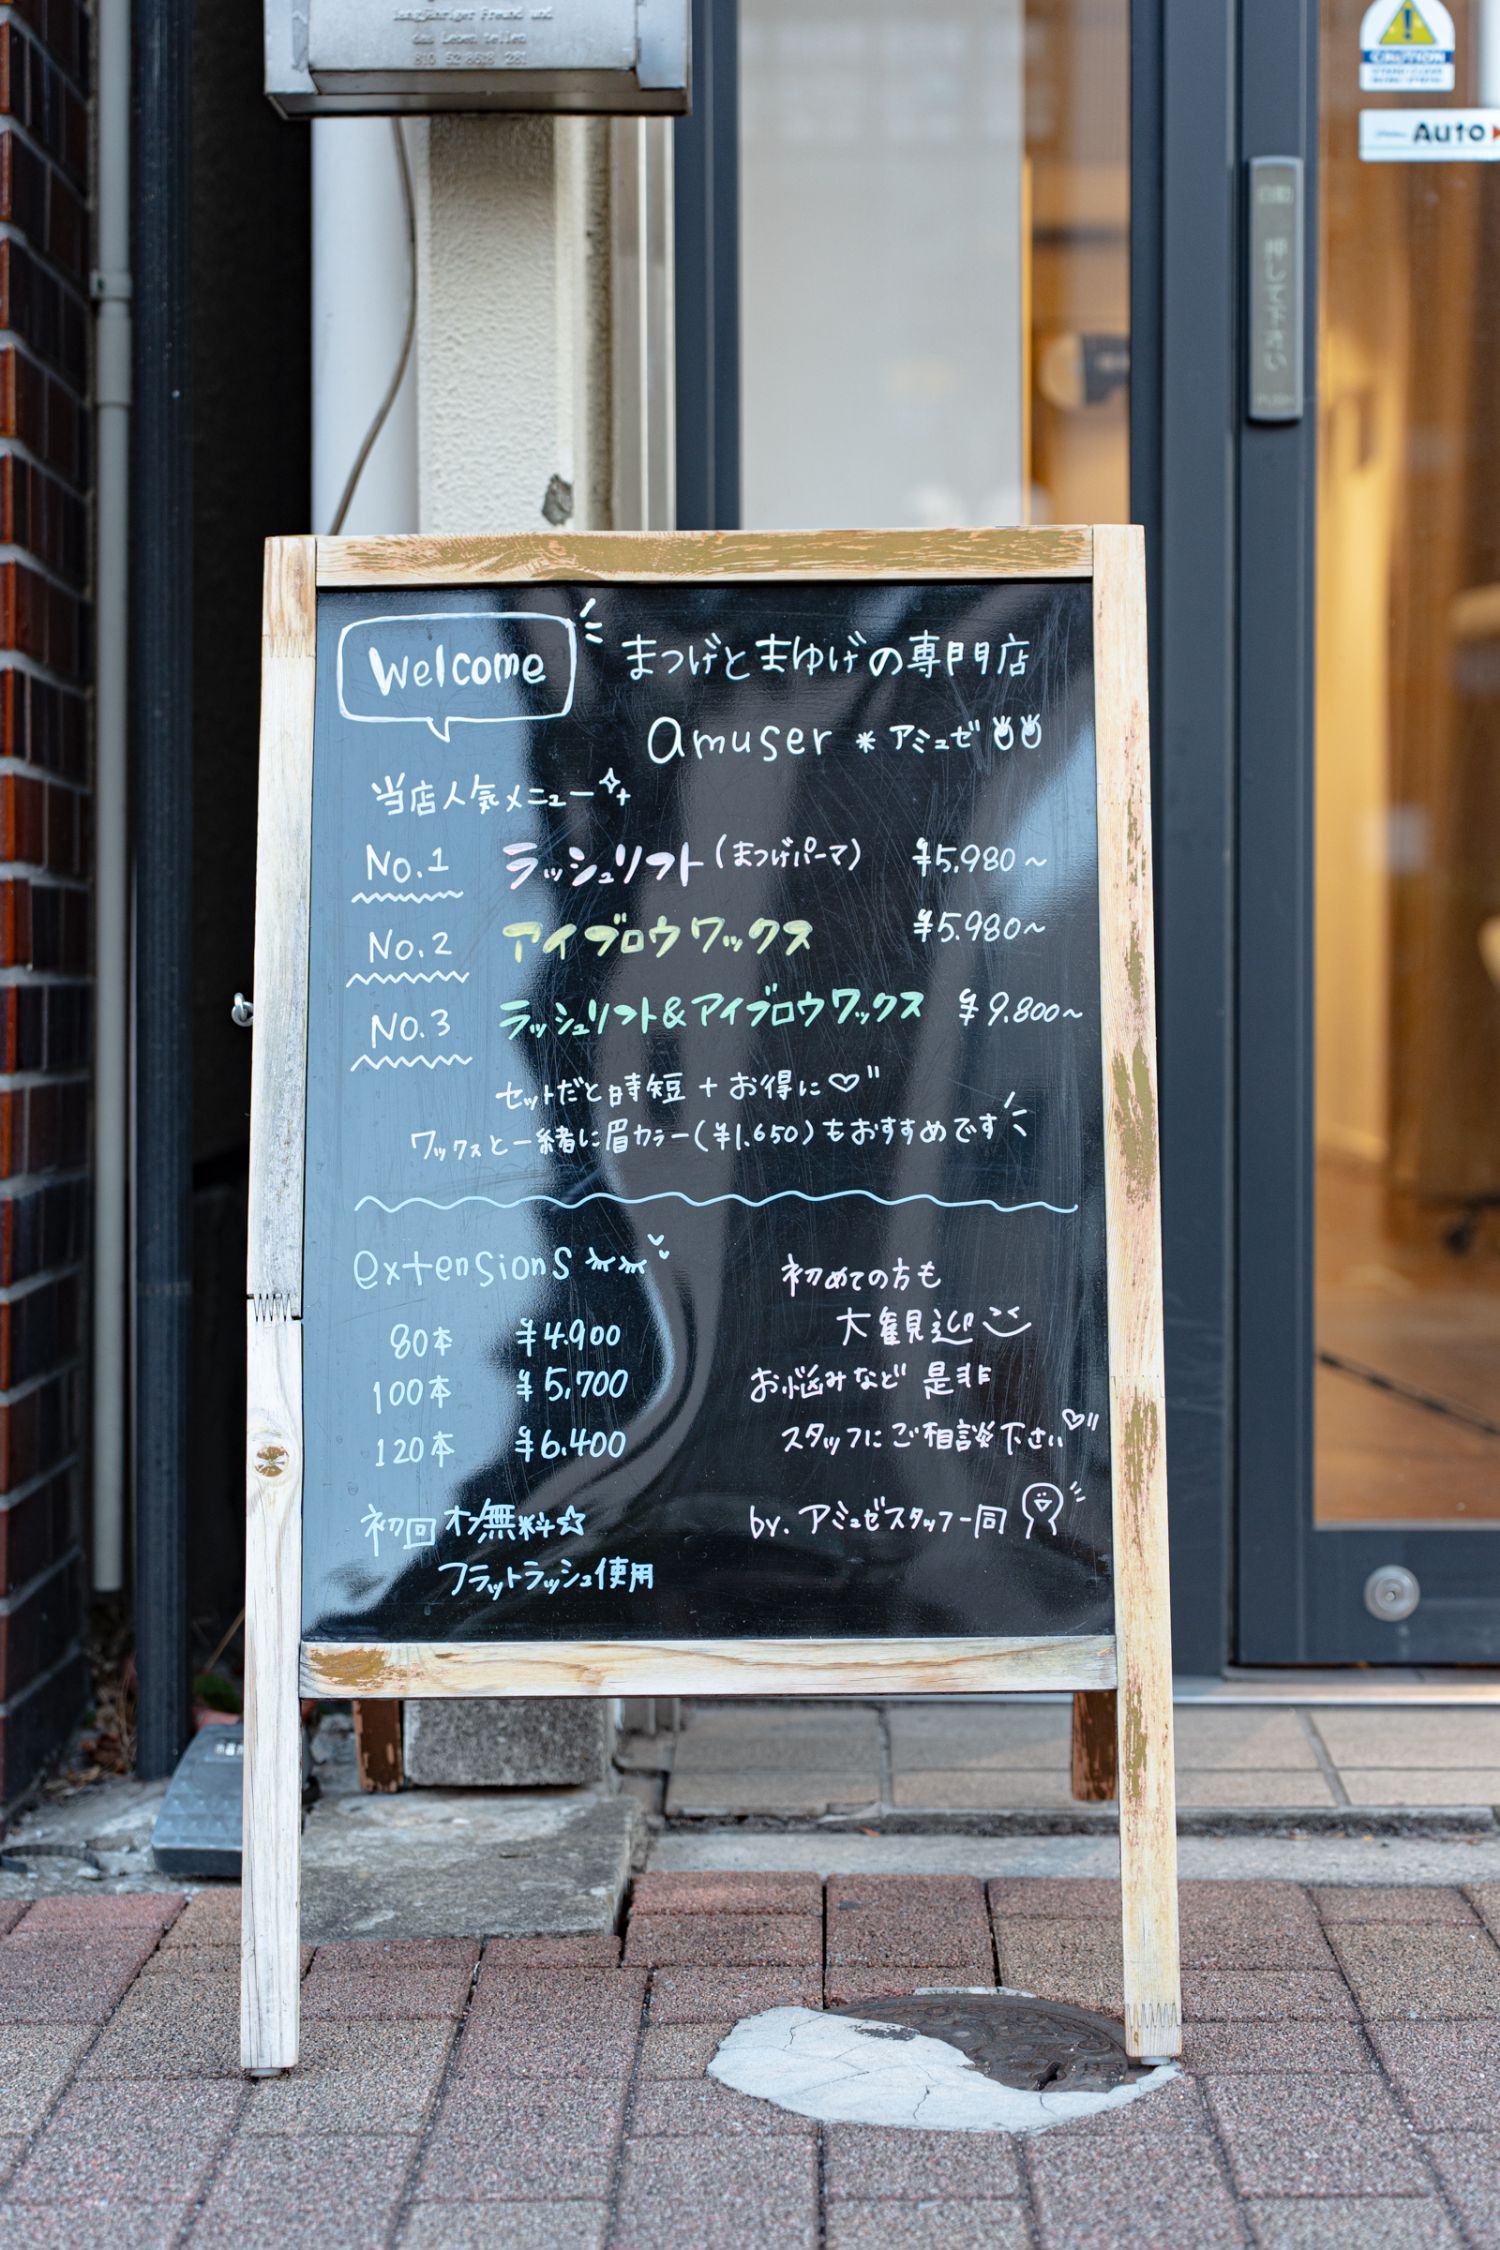 langjähriger Freund und
das Leben teilen
CAUTION
Auto
自動
押してください
Welcome
まつげとまゆげの専門店
amuser * アミュゼ
当店人気メニュー
No.1 ラッシュリフト(まつげパーマ) ¥5,980~
No.2 アイブロウワックス ¥5,980~
No.3 ラッシュリフト&アイブロウワックス ¥9,800~
セットだと時短+お得に♡"
ワックスと一緒に眉カラー(¥1,650)もおすすめです
extensions
80本 ¥4,900
100本 ¥5,700
120本 ¥6,400
初回オフ無料☆
フラットラッシュ使用
初めての方も
大観迎
お悩みなど是非
スタッフにご相談下さい♡"
by. アミュゼスタッフ一同